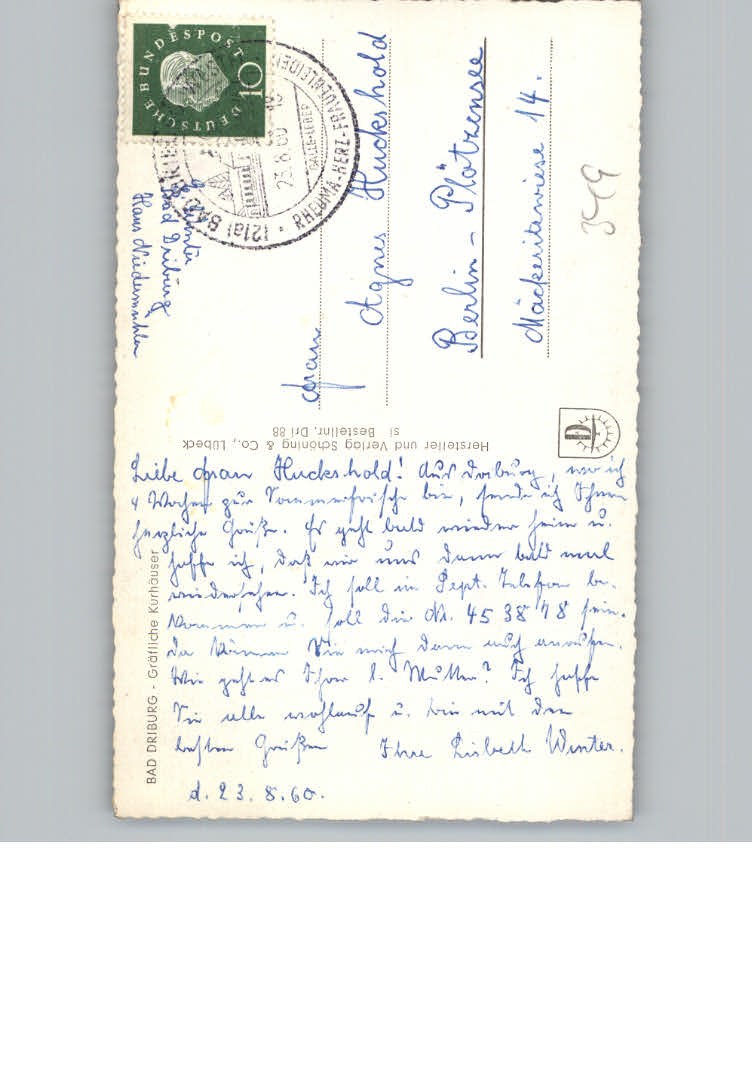 Liebe Frau Huckshold! Aus Driburg, wo ich
4 Wochen zur Sommerfrische bin, sende ich Ihnen
herzliche Grüße. Es geht bald wieder heim u.
hoffe ich, daß wir uns dann bald mal
wiedersehen. Ich soll im Sept. Telefon be-
kommen u. soll die Nr. 45 38 78 sein.
Da können Sie mich dann auch anrufen.
Wie geht es Ihrer l. Mutter? Ich hoffe
Sie alle wohlauf u. bin mit den
besten Grüßen Ihre Lisbeth Winter.
d. 23.8.60.
BAD DRIBURG - Gräfliche Kurhäuser
Hersteller und Verlag Schöning & Co., Lübeck
si Bestellnr. Dri 88
D
Bad Driburg
Haus Niedermühlen
Frau
Agnes Huckshold
Berlin - Plötzensee
Mäckeritzwiese 14.
349
DEUTSCHE BUNDESPOST
10
(21a) BAD
23.8.60
GALLE-LEBER
RHEUMA-HERZ-FRAUENLEIDEN